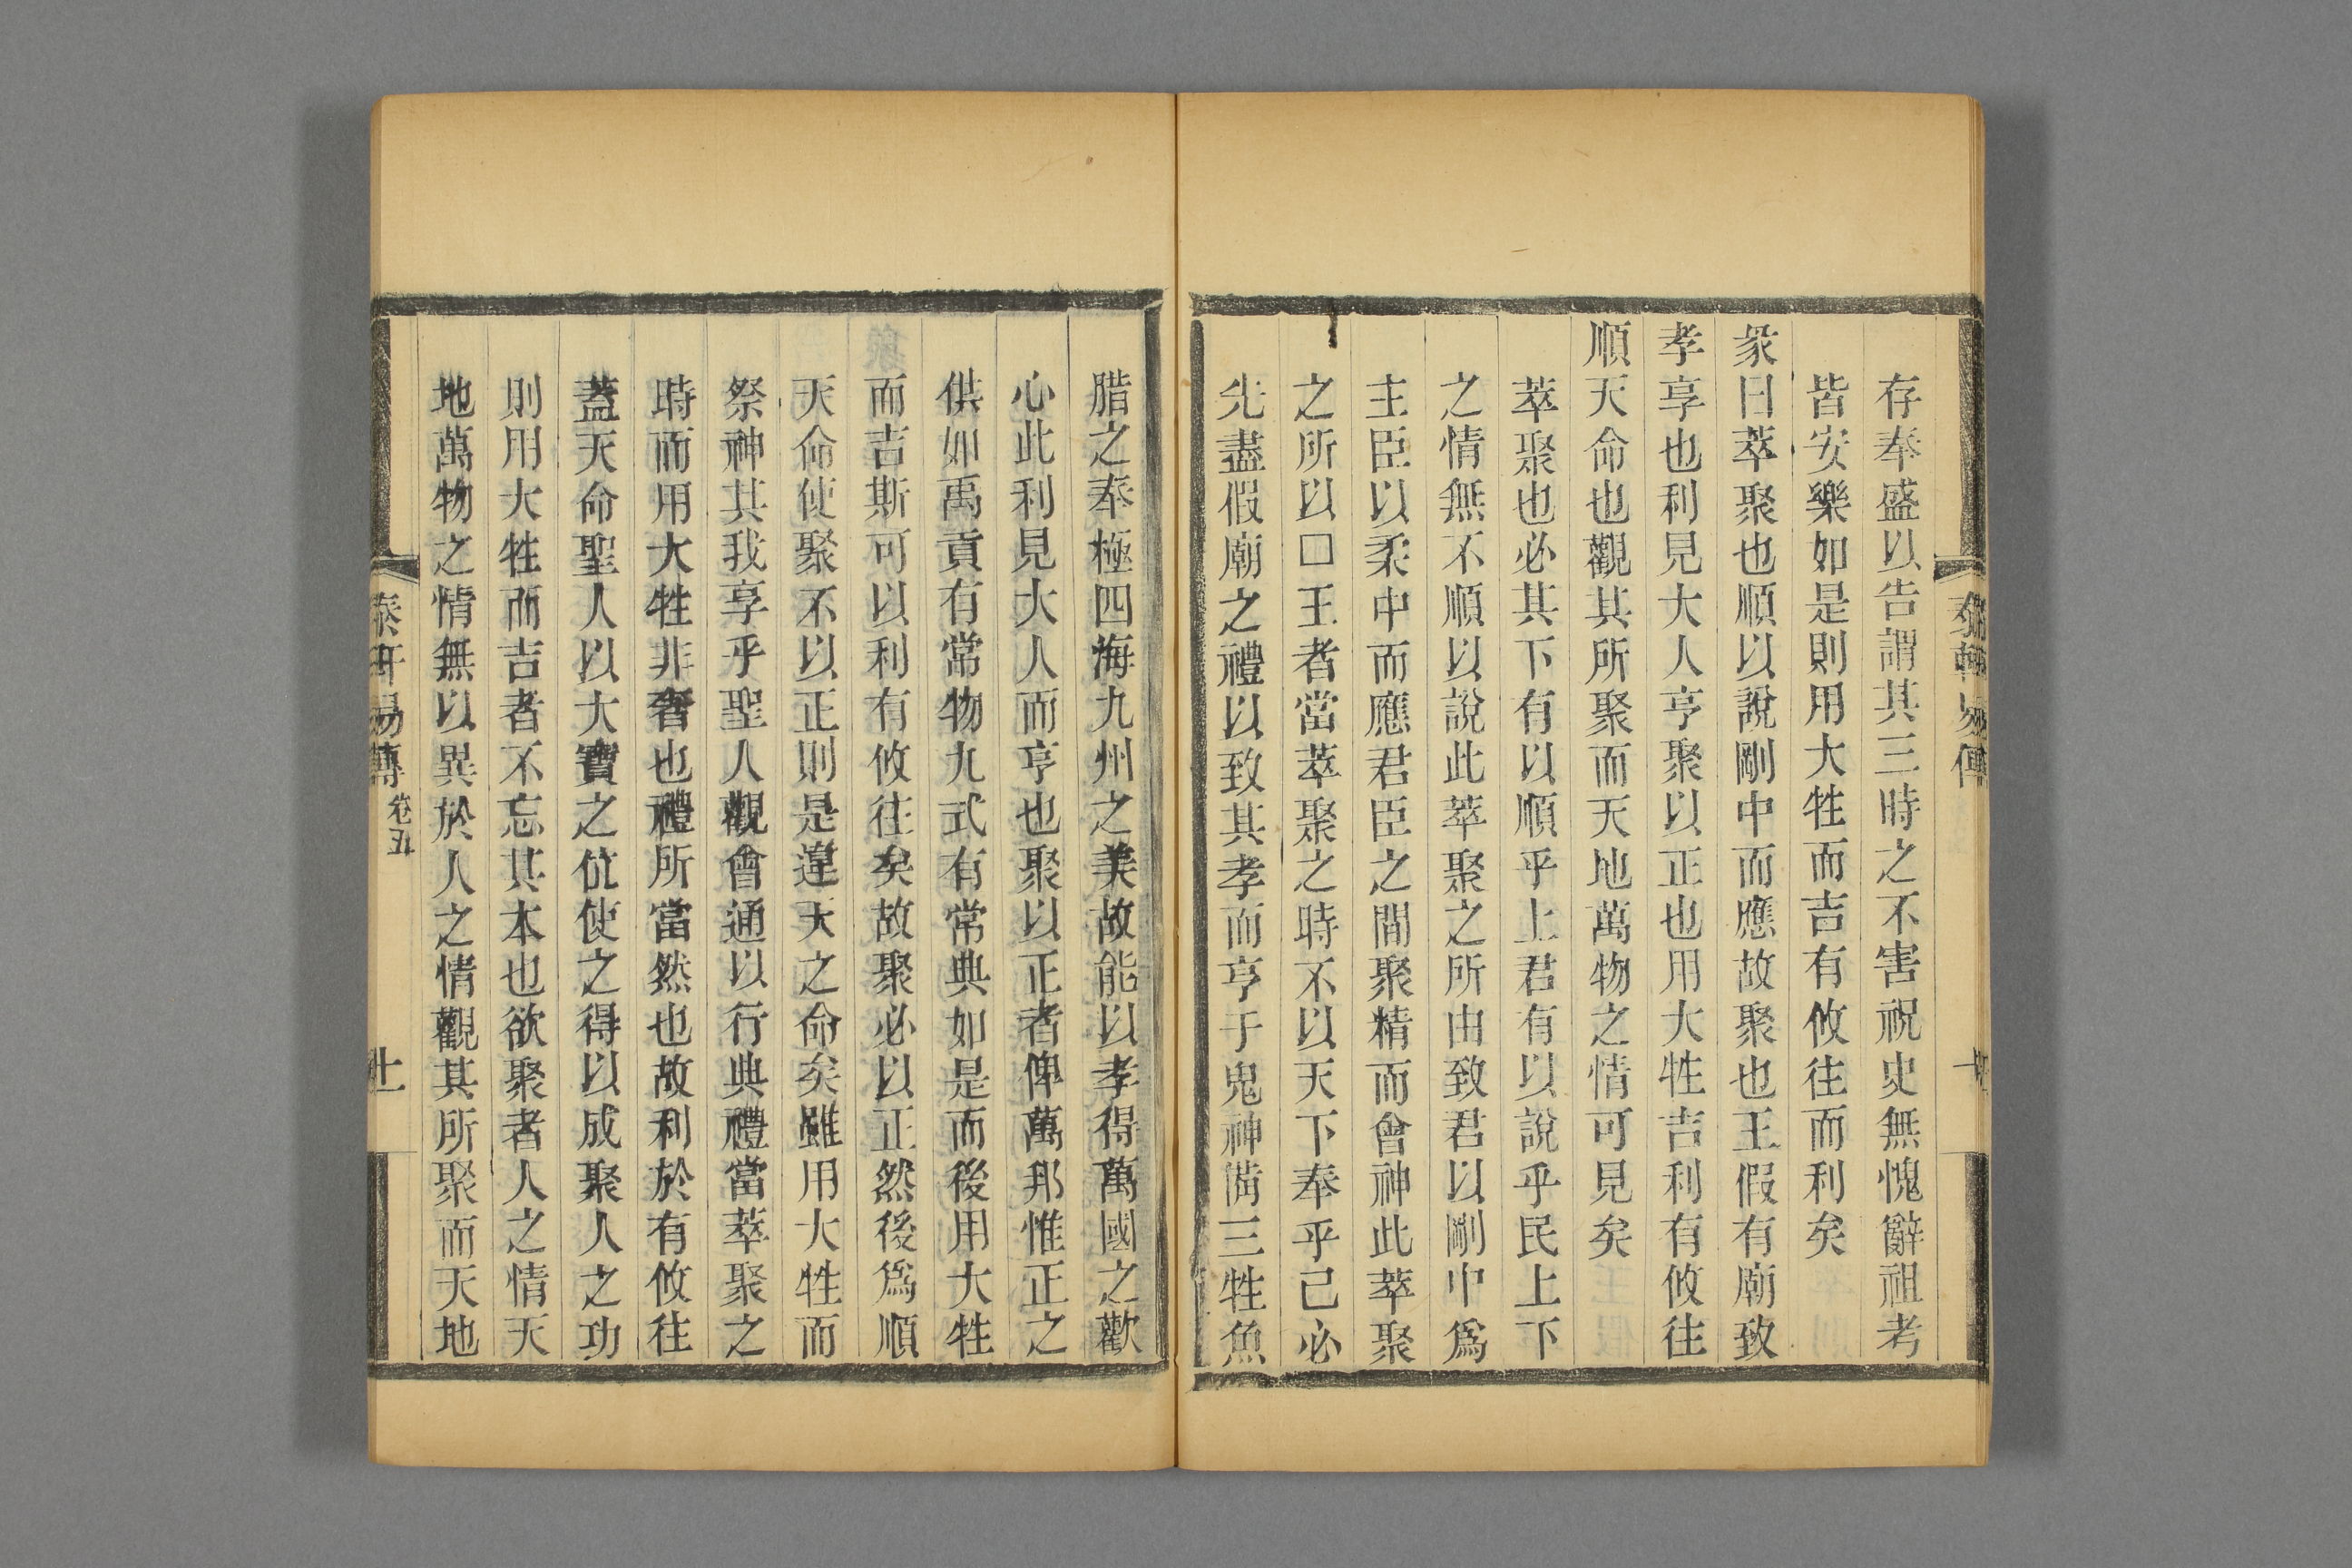 存奉盛以告謂其三時之不害祝史無愧辭祖考
皆安樂如是則用大牲而吉有攸往而利矣
彖曰萃聚也順以說剛中而應故聚也王假有廟致
孝享也利見大人亨聚以正也用大牲吉利有攸往
順天命也觀其所聚而天地萬物之情可見矣
萃聚也必其下有以順乎上君有以說乎民上下
之情無不順以說此萃聚之所由致君以剛中爲
主臣以柔中而應君臣之間聚精而會神此萃聚
之所以□王者當萃聚之時不以天下奉乎己必
先盡假廟之禮以致其孝而亨于鬼神薦三牲魚
腊之奉極四海九州之美故能以孝得萬國之歡
心此利見大人而亨也聚以正者俾萬邦惟正之
供如禹貢有常物九式有常典如是而後用大牲
而吉斯可以利有攸往矣故聚必以正然後爲順
天命使聚不以正則是違天之命矣雖用大牲而
祭神其我享乎聖人觀會通以行典禮當萃聚之
時而用大牲非奢也禮所當然也故利於有攸往
蓋天命聖人以大寶之位使之得以成聚人之功
則用大牲而吉者不忘其本也欲聚者人之情天
地萬物之情無以異於人之情觀其所聚而天地
易傳 卷五
十一